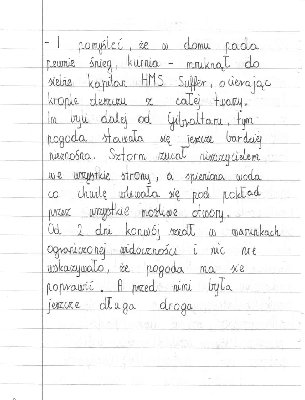 - I pomyśleć, że w domu pada
pewnie śnieg, kurnia - mruknął do
siebie kapitan HMS Suffer, ocierając
krople deszczu z całej twarzy.
Im byli dalej od Gibraltaru, tym
pogoda stawała się jeszcze bardziej
nieznośna. Sztorm rzucał niszczycielem
we wszystkie strony, a spieniona woda
co chwilę wlewała się pod pokład
przez wszystkie możliwe otwory.
Od 2 dni konwój szedł w warunkach
ograniczonej widoczności i nic nie
wskazywało, że pogoda ma się
poprawić. A przed nimi była
jeszcze długa droga